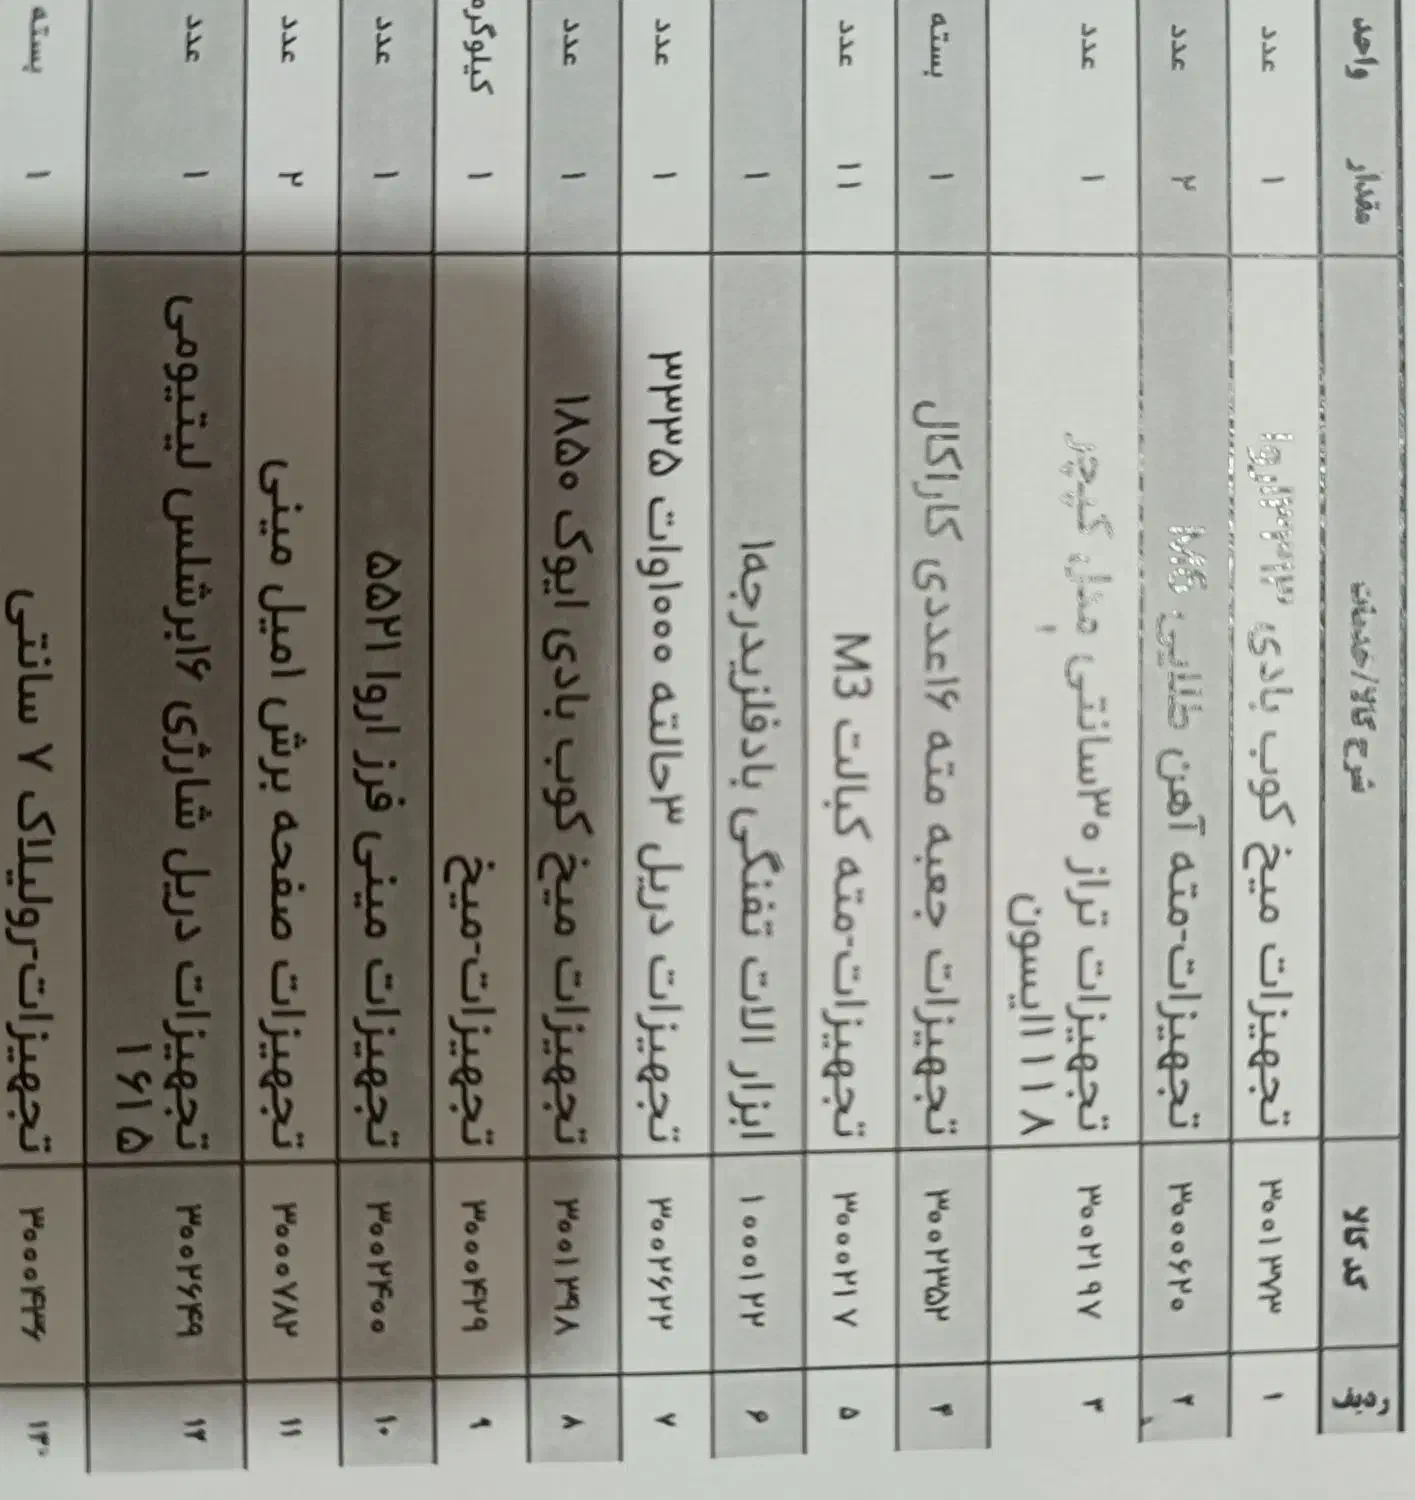 ردیف کد کالا شرح کالا/خدمات مقدار واحد
۱ ۳۰۰۱۳۷۳ تجهیزات میخ کوب بادی ۱ عدد
۲ ۳۰۰۰۶۲۰ تجهیزات-مته آهن طلایی M6 ۲ عدد
۳ ۳۰۰۲۱۹۷ تجهیزات تراز ۳۰سانتی مدل کپچر ۱ عدد
۱۱۱۸ایسون
۴ ۳۰۰۲۳۵۲ تجهیزات جعبه مته ۱۶عددی کاراکال ۱ بسته
۵ ۳۰۰۰۲۱۷ تجهیزات-مته کبالت M3 ۱۱ عدد
۶ ۱۰۰۰۱۲۲ ابزار الات تفنگی بادفلزیدرجه۱ ۱
۷ ۳۰۰۲۶۲۲ تجهیزات دریل ۳حالته ۱۰۰۰وات ۳۳۳۵ ۱ عدد
۸ ۳۰۰۱۳۹۸ تجهیزات میخ کوب بادی ایوک ۱۸۵۰ ۱ عدد
۹ ۳۰۰۰۴۲۹ تجهیزات-میخ ۱ کیلوگرم
۱۰ ۳۰۰۲۴۰۰ تجهیزات مینی فرز اروا ۵۵۲۱ ۱ عدد
۱۱ ۳۰۰۰۷۸۲ تجهیزات صفحه برش امیل مینی ۲ عدد
۱۲ ۳۰۰۲۶۴۹ تجهیزات دریل شارژی ۱۶برشلس لیتیومی ۱ عدد
۱۶۱۵
۱۳ ۳۰۰۰۴۳۶ تجهیزات-رولپلاک ۷ سانتی ۱ بسته